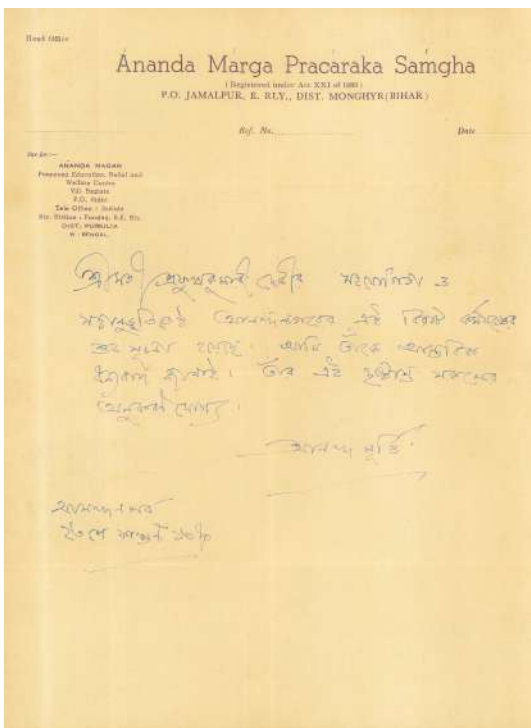 Head Office
Ánanda Marga Pracáraka Saḿgha
(Registered under Act XXI of 1860)
P.O. JAMALPUR, E. RLY., DIST. MONGHYR (BIHAR)
Ref. No.
Date
ANANDA NAGAR
Proposed Education, Relief and
Welfare Centre
Vill Baglata
P.O.
Tele Office :
Rly. Station : Pundag, S.E. Rly.
DIST. PURULIA
W. BENGAL
শ্রীমতী প্রফুল্লকুমারী দেবীর সহযোগিতা ও
সহানুভূতিতেই আনন্দনগরের এই বিরাট কর্মযজ্ঞের
শুভ সূচনা হয়েছে। আমি তাঁকে আন্তরিক
ধন্যবাদ জানাই। তাঁর এই দৃষ্টান্ত সকলের
অনুকরণ যোগ্য।
আনন্দ মূর্ত্তি
আনন্দনগর
ফাল্গুন